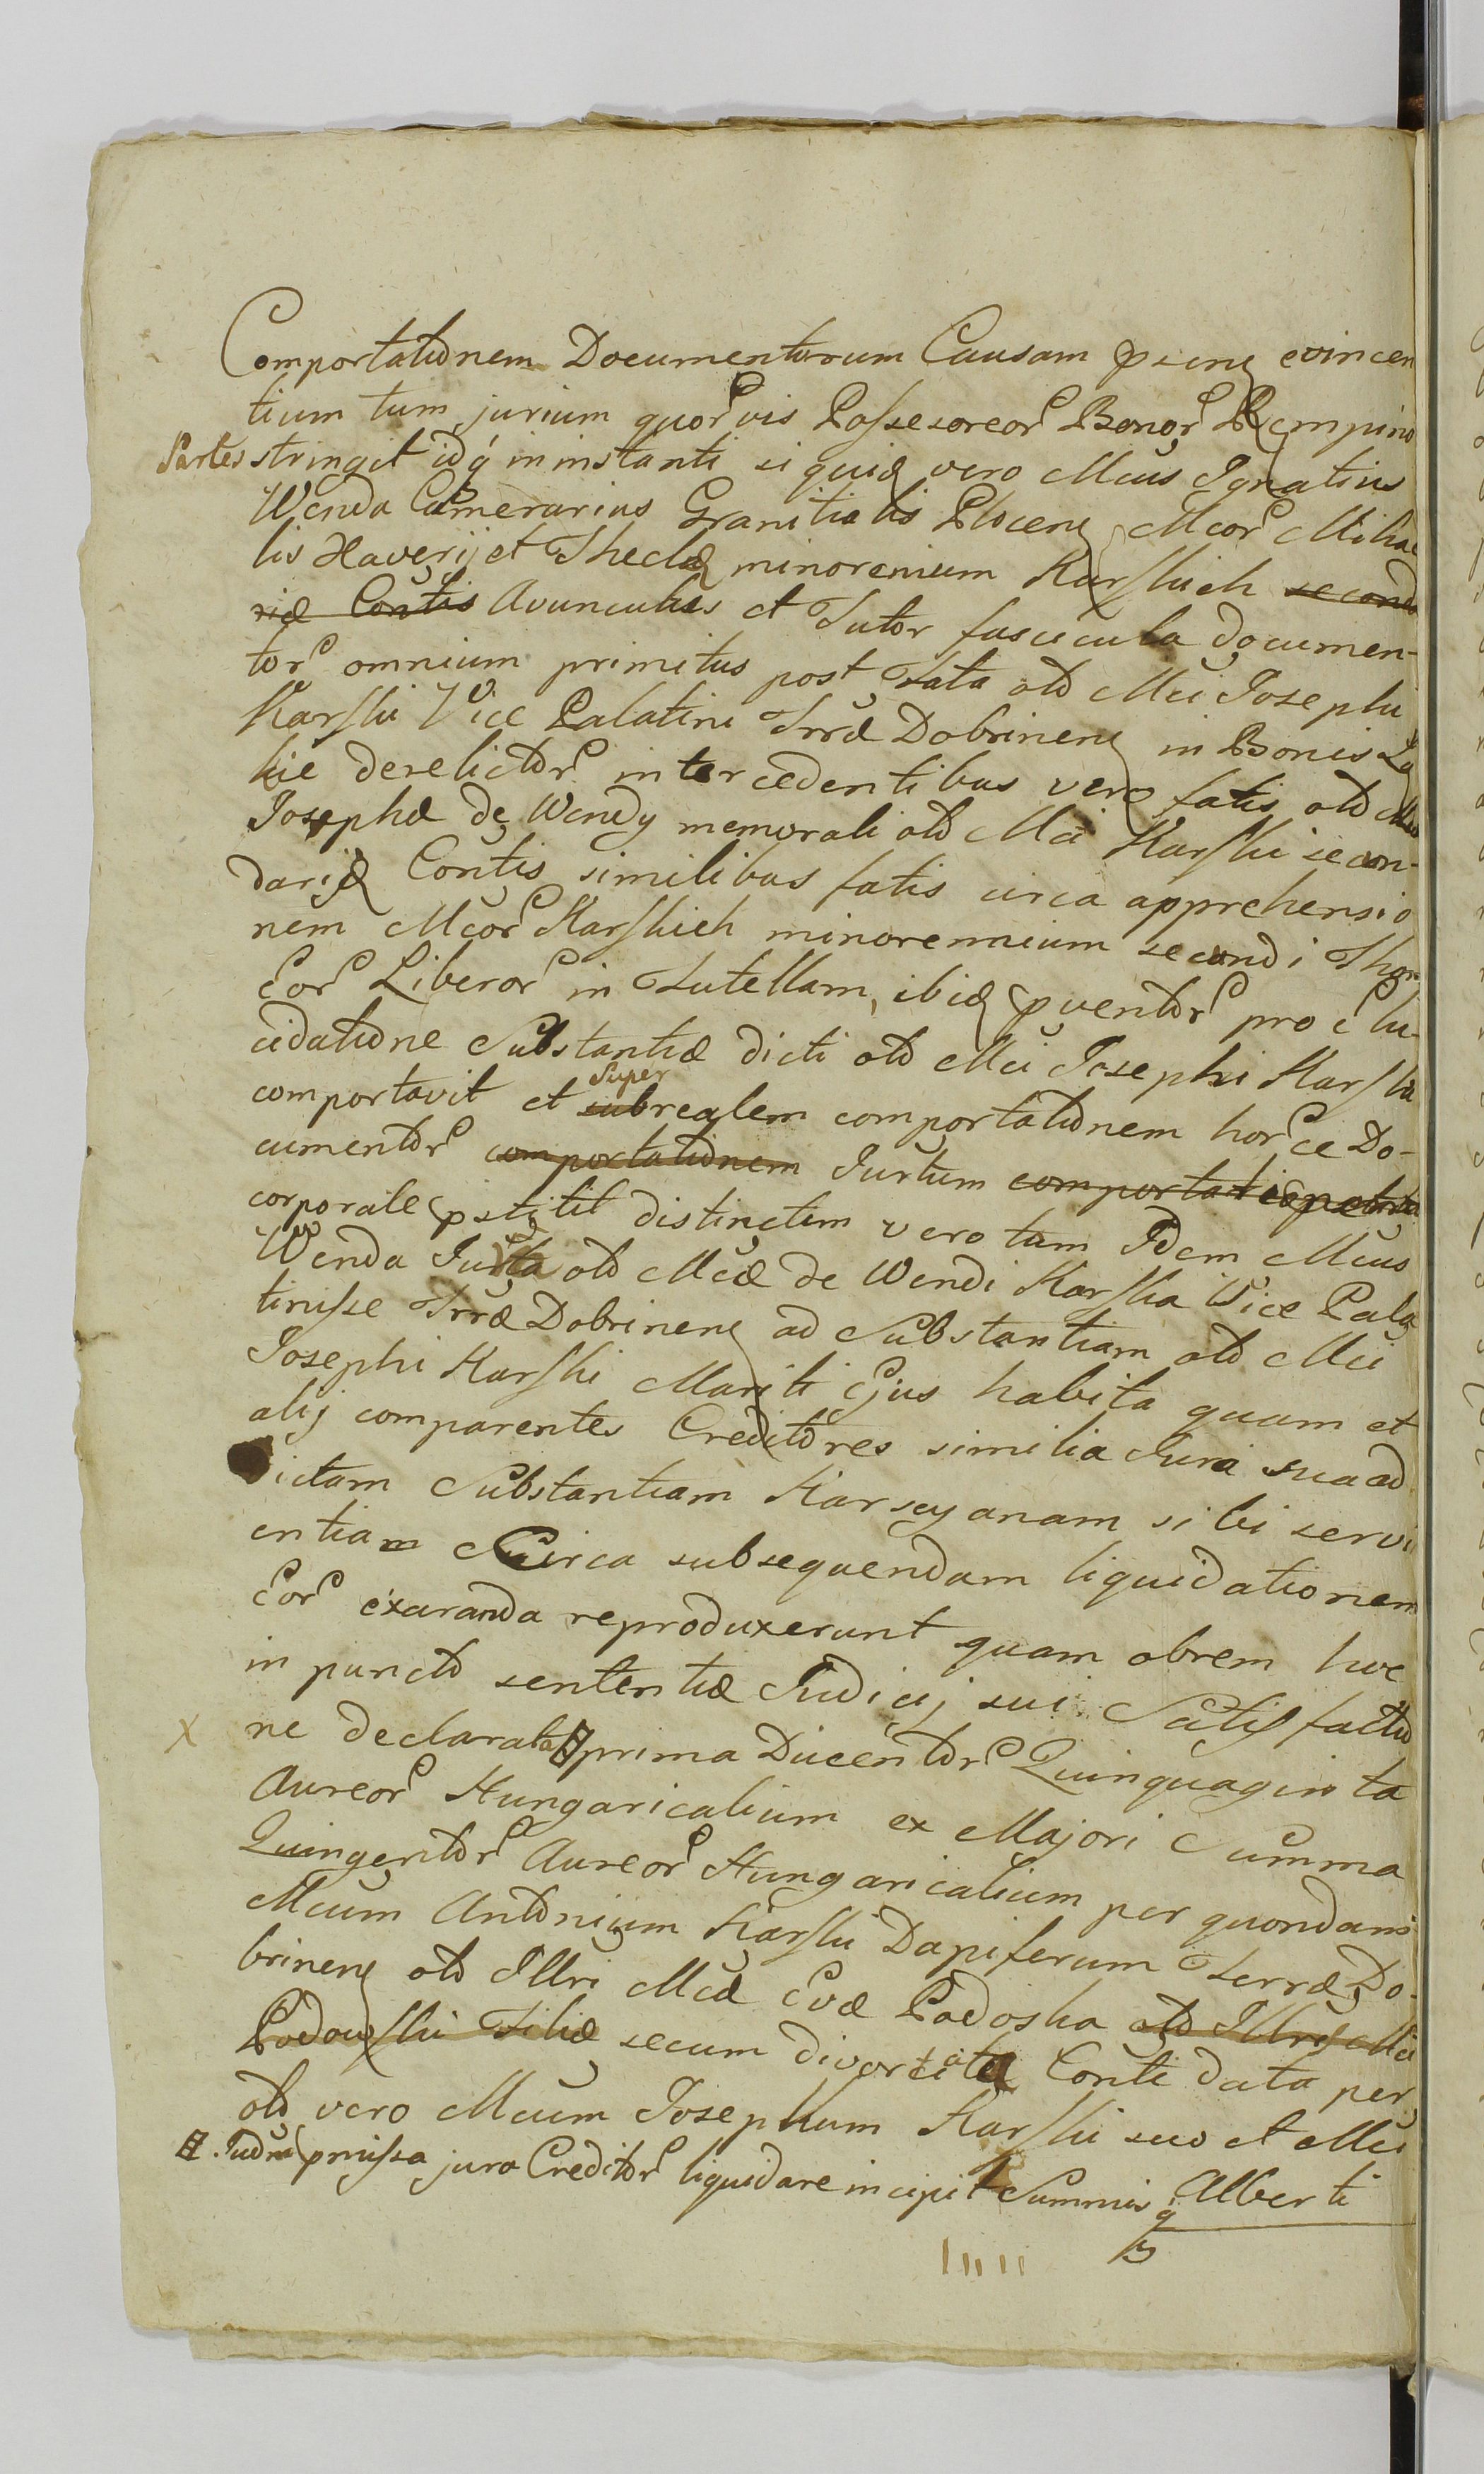 Comportationem Documentorum Causam pnem evincen
tium tum jurium quorvis Possessoreor Bonor Rempino
Partes stringit idq in instanti siquid vero Mcus Ignatius
Wenda Camerarius Granitialis Plocen Mcor Michae
lis Xaverij et Theclæ minorenium Karskich secunda
riæ Contis Avunculus et Tutor fascicula documen-
tor omnium primitus post Fata olo Mci Josephi
Karski Vice Palatini Trræ Dobrinen in Bonis
kie derelictor intercedentibus vero fatis olo Mcæ
Josephæ de Wendy memorati olo Mci Karski secun-
dariæ Contis similibus fatis circa apprehensio
nem Mcor Karskich minorennium secundi Thori
Eor Liberor in Tutellam, ibid pventor pro elu-
cidatione Substantiæ dicti olo Mci Josephi Karski
comportavit et Super subrealem comportationem horce Do-
cumentor comportationem Jurtum
corporale pstitit distinctim vero tam Idem Mcus
Wenda Jurta olo Mcæ de Wendi Karska Vice Pala
tinisse Trræ Dobrinen ad Substantiam olo Mci
Josephi Karski Mariti Ejus habita quam et
alij comparentes Creditores similia Jura sua ad
dictam Substantiam Karscyanam sibi servi
entiam Circa subsequendam liquidationem
Eor exaranda reproduxerunt quam obrem hoc
in puncto sententiæ Judicij sui Satisfactio
X ne declarata prima Ducentor Quinquaginta
Aureor Hungaricalium ex Majori Summa
Quingentor Aureor Hungaricalium per quondam
Mcum Antonium Karski Dapiferum Terræ Do-
brinen olo Illri Mcæ Evæ Podoska olo Illris Mci
Podowski Filiæ secum divortiatæ Conti data per
olo vero Mcum Josephum Karski suo et Mci
Judm pmissa jura Creditor liquidare incipit Summis q Alberti